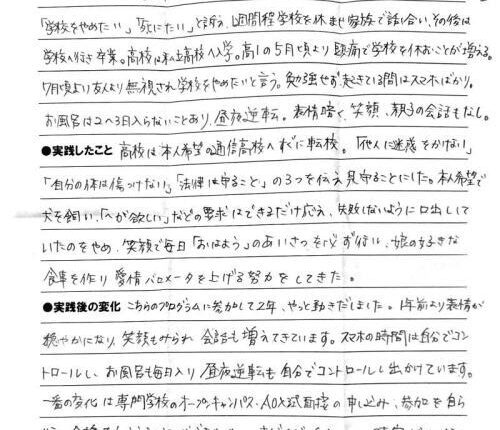 「学校をやめたい」「死にたい」と訴え、1週間程学校を休ませ家族で話し合い、その後は
学校へ行き卒業。高校は私立高校へ入学。高1の5月頃より頭痛で学校を休むことが増える。
7月頃より友人より無視され学校をやめたいと言う。勉強せず、起きている間はスマホばかり。
お風呂は2〜3日入らないことあり、昼夜逆転。表情暗く、笑顔、親子の会話もなし。
●実践したこと 高校は本人希望の通信高校へすぐに転校。「他人に迷惑をかけない」
「自分の体は傷つけない」「法律は守ること」の3つを伝え見守ることにした。本人希望で
犬を飼い、「〜が欲しい」などの要求はできるだけ応え、失敗しないように口出しして
いたのをやめ、笑顔で毎日「おはよう」のあいさつを必ず行い、娘の好きな
食事を作り愛情バロメータを上げる努力をしてきた。
●実践後の変化 こちらのプログラムに参加して2年、やっと動きだしました。1年前より表情が
穏やかになり、笑顔もみられ、会話も増えてきています。スマホの時間は自分でコン
トロールし、お風呂も毎日入り、昼夜逆転も自分でコントロールし出かけています。
一番の変化は専門学校のオープンキャンパス・AO入試面接の申し込み、参加を自ら